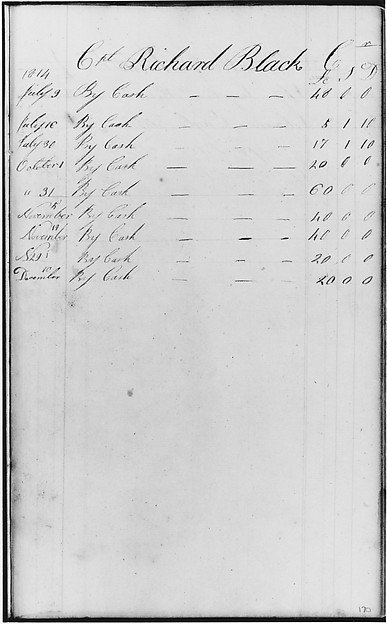 Cpt Richard Black Cr
1814 £ S D
July 9 By Cash — — — 40 0 0
July 16 By Cash — — 5 1 10
July 30 By Cash — — 17 1 10
October 1 By Cash — — — 20 0 0
" 31 By Cash — — — 60 0 0
November By Cash — — — 40 0 0
November By Cash — — — 40 0 0
By Cash — — — 20 0 0
December 10 By Cash — — — 20 0 0
170